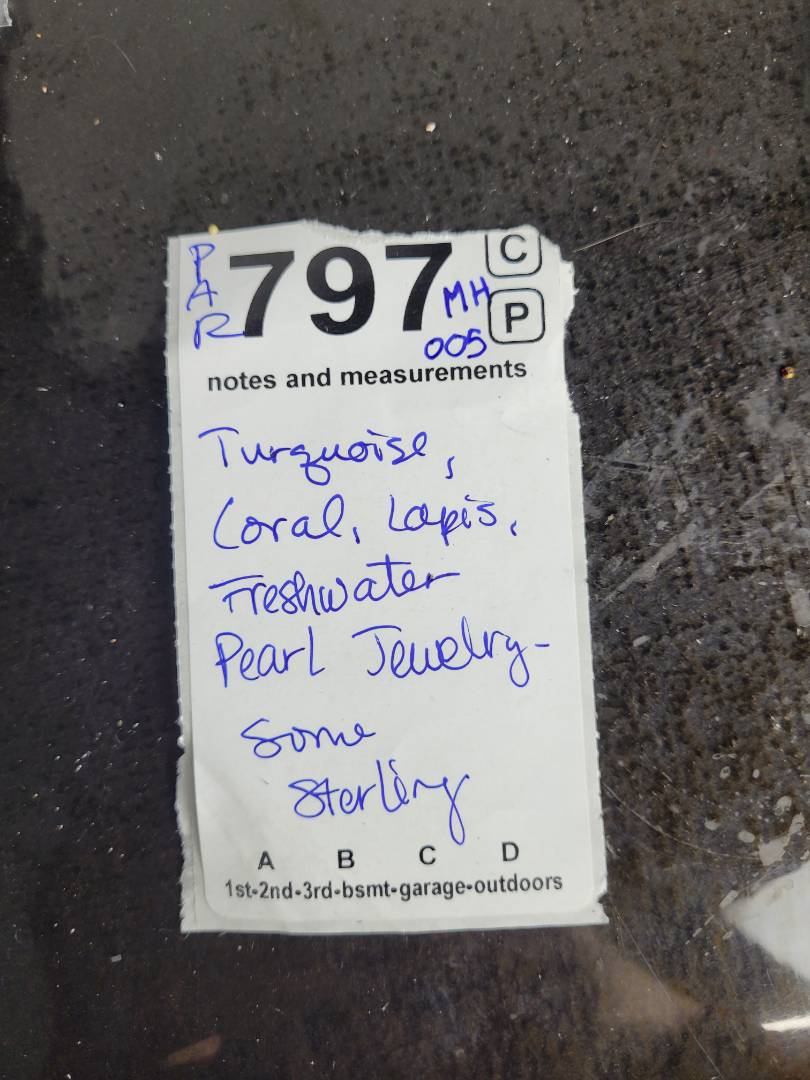 PAR 797 C
MH P
005
notes and measurements
Turquoise,
Coral, Lapis,
Freshwater
Pearl Jewelry-
Some
Sterling
A B C D
1st-2nd-3rd-bsmt-garage-outdoors